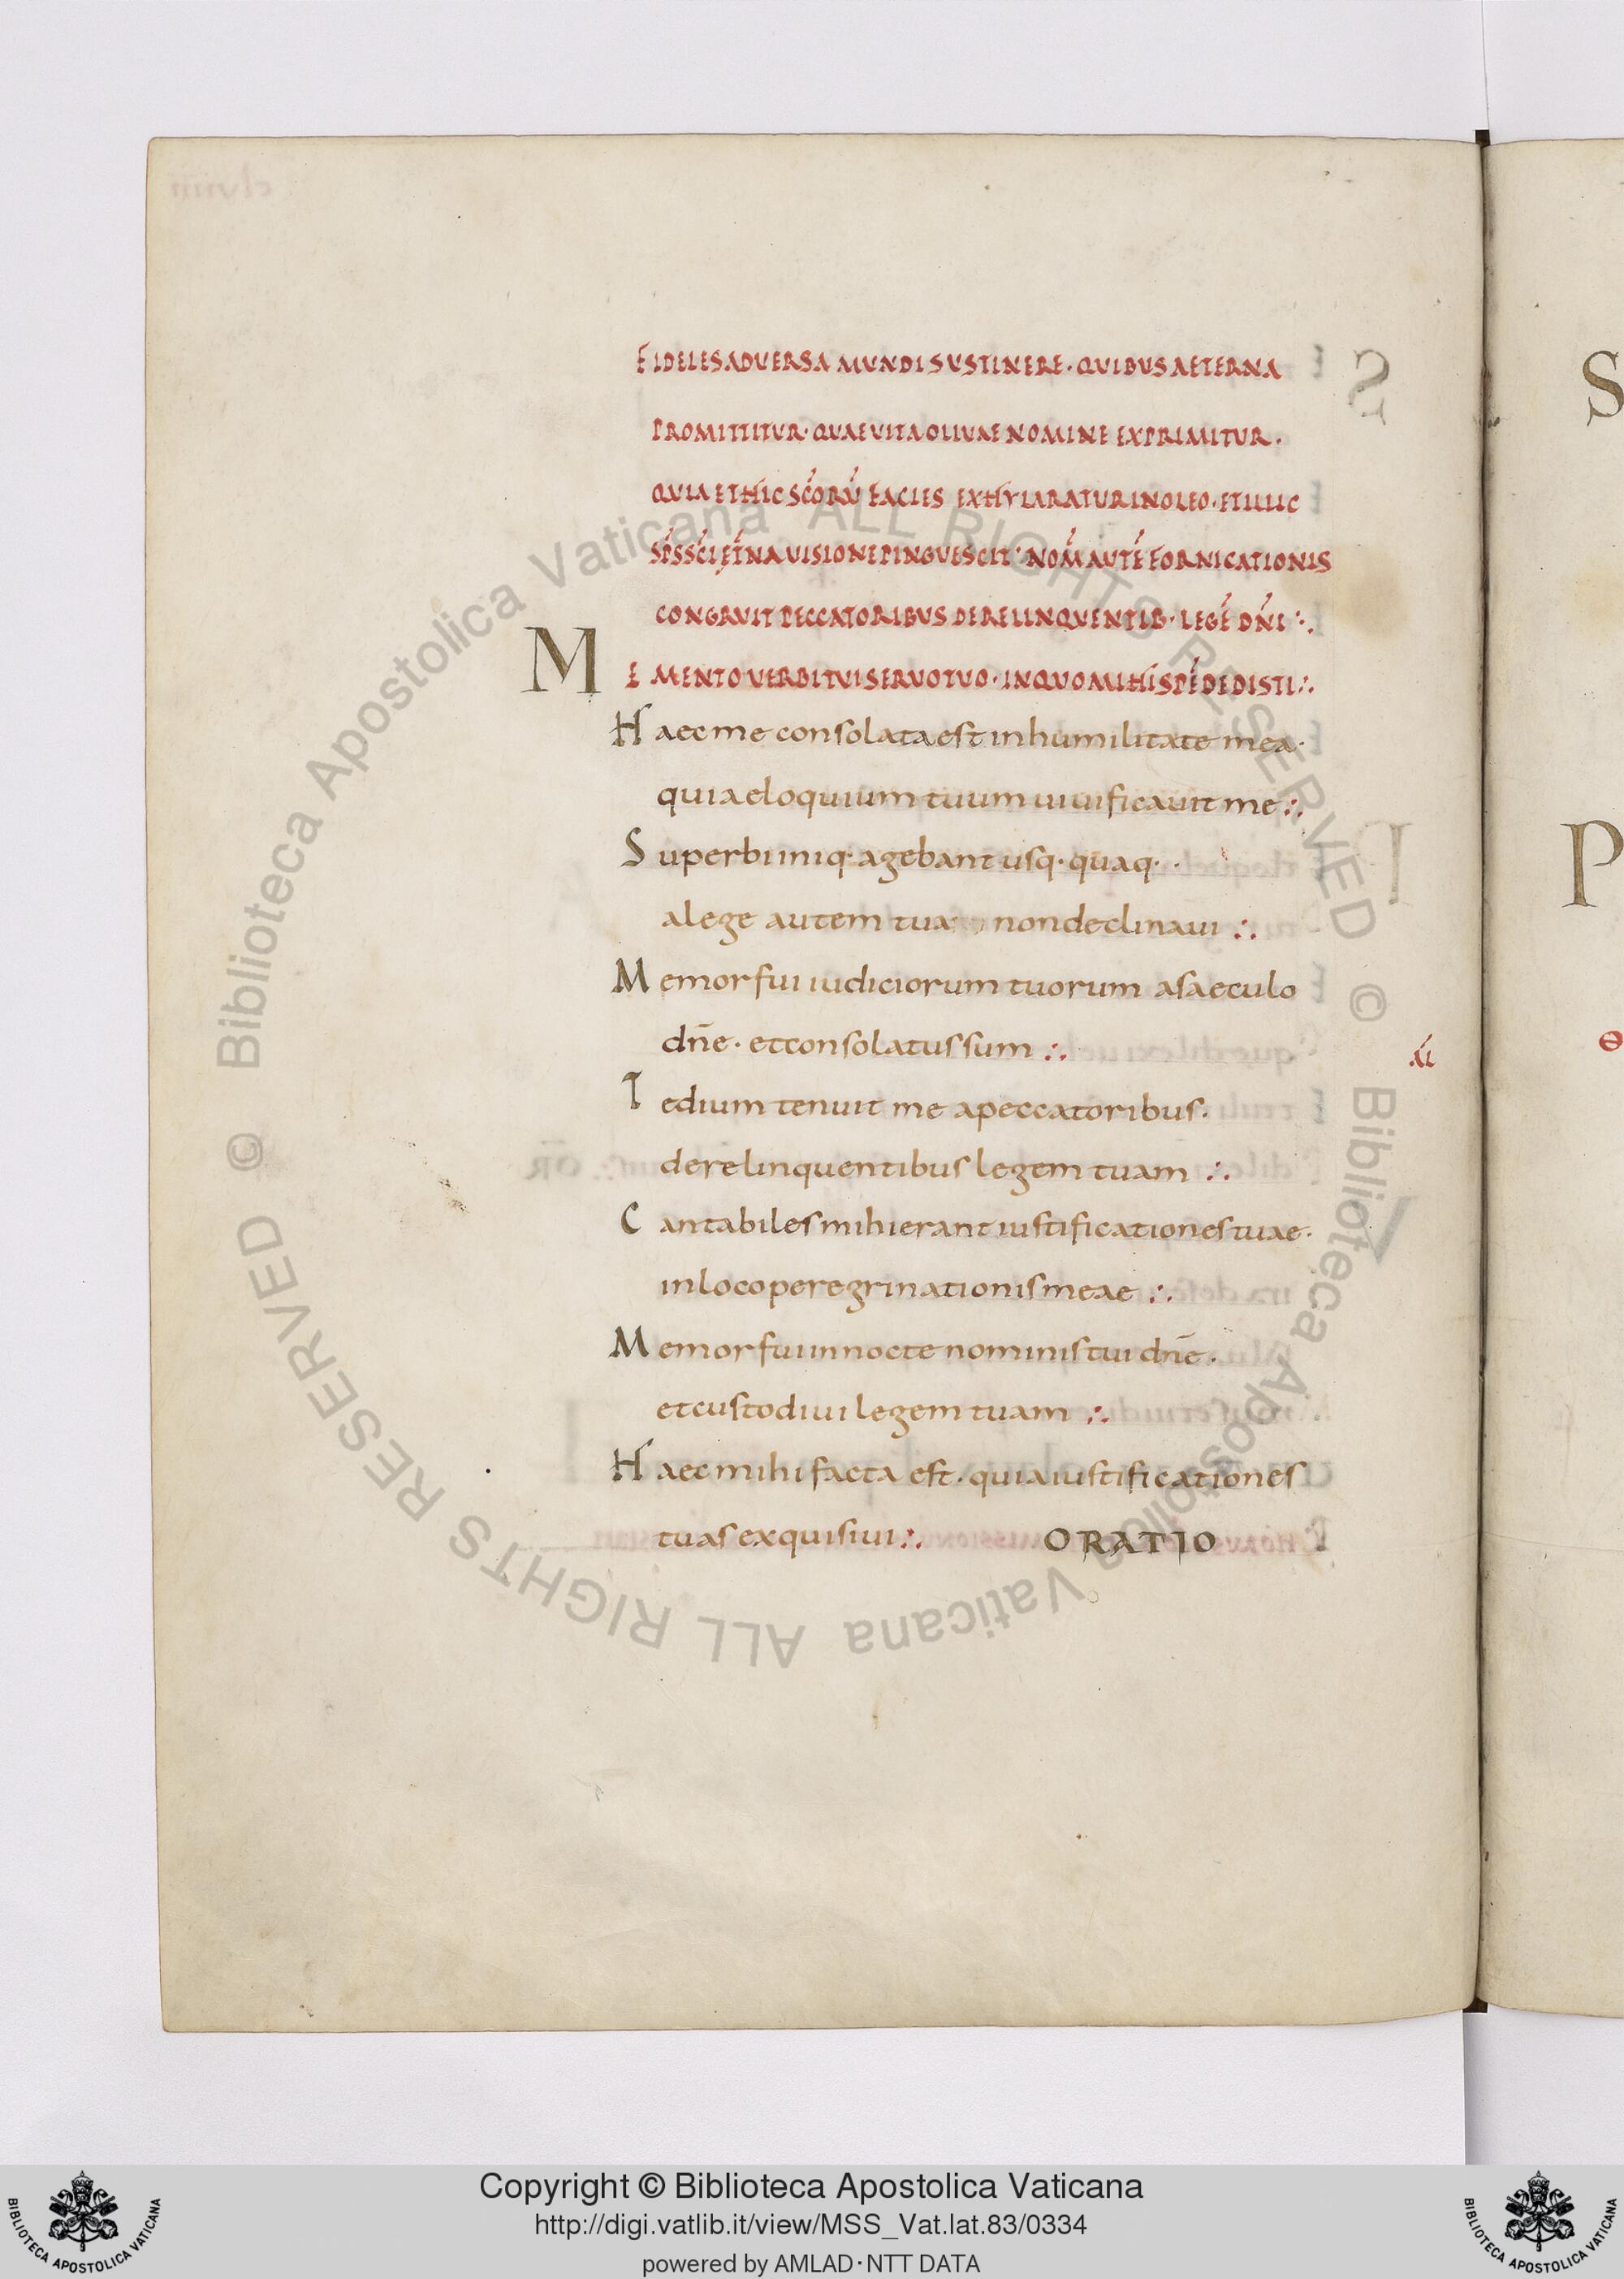 FIDELES ADVERSA MVNDI SVSTINERE · QVIBVS AETERNA
PROMITTITVR · QVAE VITA OLIVAE NOMINE EXPRIMITVR ·
QVIA ET HIC SC̄ORV̄ FACIES EXHYLARATVR IN OLEO · ET ILLIC
SP̄S SC̄I ĘT̄NA VISIONE PINGVESCIT · NOM̄ AVTĒ FORNICATIONIS
CONGRVIT PECCATORIBVS DERELINQVENTIB · LEGĒ DN̄I ∴
M E MENTO VERBI TVI SERVO TVO · IN QVO MIHI SPĒ DEDISTI ∴
Haec me consolata est in humilitate mea ·
quia eloquium tuum uiuificauit me ∴
Superbi iniq· agebant usq· quaq· ·
a lege autem tua non declinaui ∴
Memor fui iudiciorum tuorum a saeculo
dn̄e · et consolatus sum ∴
Tedium tenuit me a peccatoribus ·
derelinquentibus legem tuam ∴
Cantabiles mihi erant iustificationes tuae ·
in loco peregrinationis meae ∴
Memor fui in nocte nominis tui dn̄e ·
et custodiui legem tuam ∴
Haec mihi facta est · quia iustificationes
tuas exquisiui ∴ ORATIO
S
P
© Biblioteca Apostolica Vaticana ALL RIGHTS RESERVED © Biblioteca Apostolica Vaticana ALL RIGHTS RESERVED
Copyright © Biblioteca Apostolica Vaticana
http://digi.vatlib.it/view/MSS_Vat.lat.83/0334
powered by AMLAD · NTT DATA
BIBLIOTECA APOSTOLICA VATICANA
BIBLIOTECA APOSTOLICA VATICANA